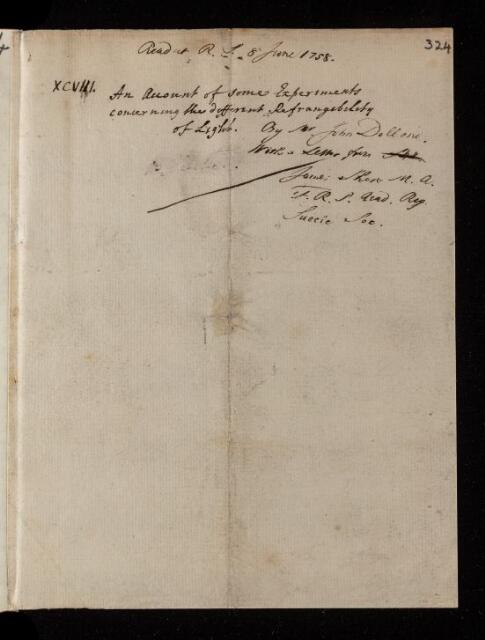 Read at R. S. 8 June 1758.
324
XCVIII. An Account of some Experiments
concerning the different Refrangibility
of Light. By Mr John Dollond.
With a Letter from
James Short M. A.
F. R. S. Acad. Reg.
Suecic Soc.